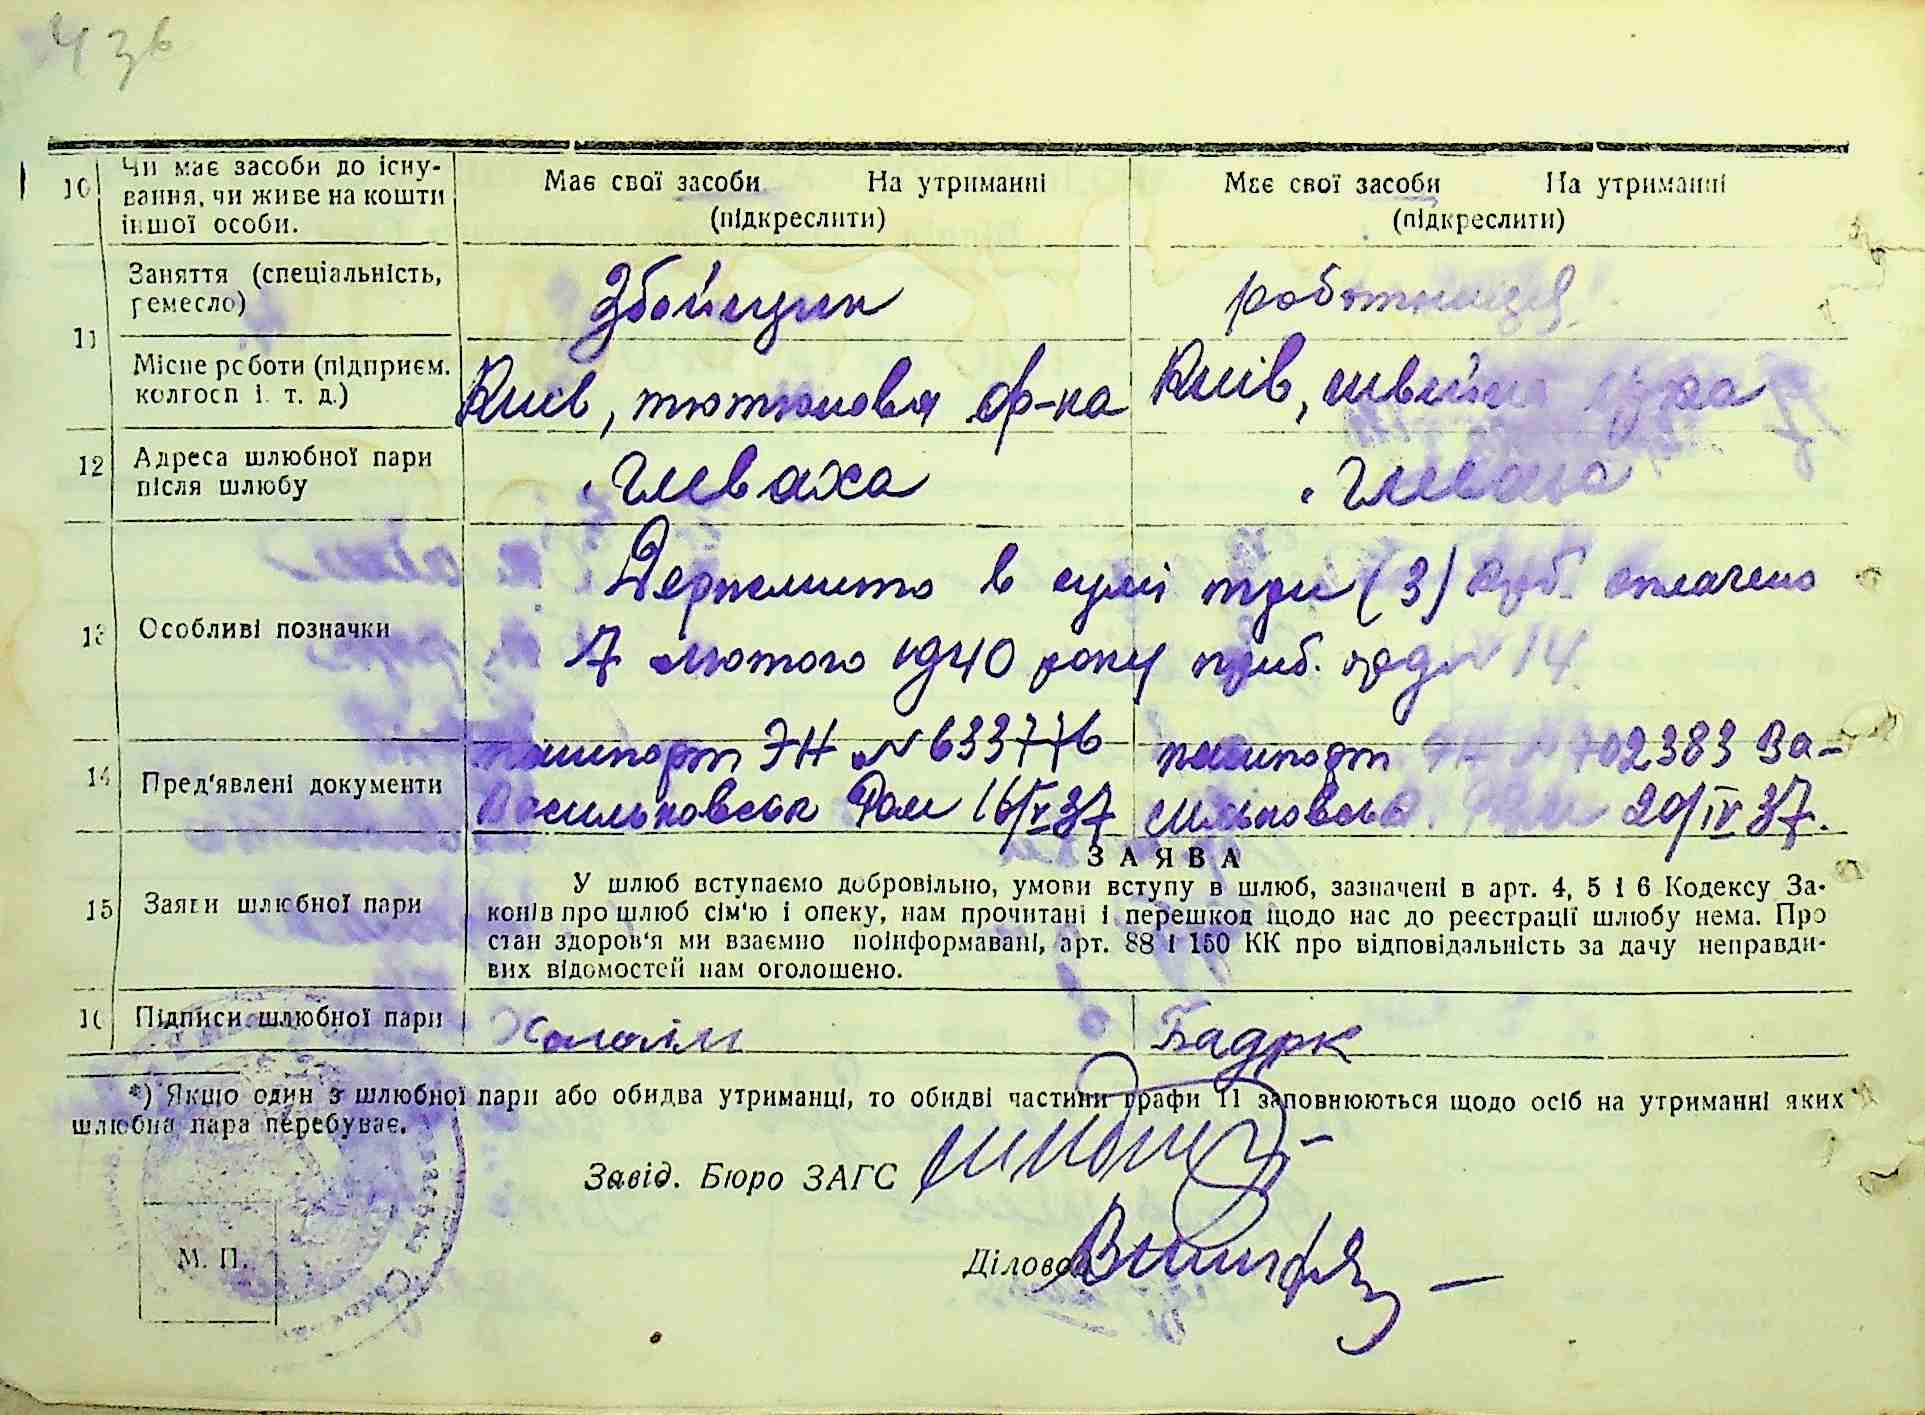 436
10 Чи має засоби до існу-
вання, чи живе на кошти
іншої особи.
Має свої засоби На утриманні
(підкреслити)
Має свої засоби На утриманні
(підкреслити)
11 Заняття (спеціальність,
ремесло)
Збойщик
робітниця
Місце роботи (підприєм.
колгосп і. т. д.)
Київ, тютюнова ф-ка
Київ, швейна
12 Адреса шлюбної пари
після шлюбу
Глеваха
Глеваха
13 Особливі позначки
Держмито в сумі три (3) крб. оплачено
7 лютого 1940 року приб. орд N 14
14 Пред'явлені документи
пашпорт ЭН N 633776
Васильковськ Рам 16/IV 37
пашпорт ЭН N 702383 Ва-
сильковськ. Рам 20/IV 37.
15 Заяви шлюбної пари
ЗАЯВА
У шлюб вступаємо добровільно, умови вступу в шлюб, зазначені в арт. 4, 5 і 6 Кодексу За-
конів про шлюб сім'ю і опеку, нам прочитані і перешкод щодо нас до реєстрації шлюбу нема. Про
стан здоров'я ми взаємно поінформавані, арт. 88 і 150 КК про відповідальність за дачу неправди-
вих відомостей нам оголошено.
16 Підписи шлюбної пари
Бадрк
*) Якщо один з шлюбної пари або обидва утриманці, то обидві частини графи 11 заповнюються щодо осіб на утриманні яких
шлюбна пара перебуває.
Завід. Бюро ЗАГС
Діловод
М. П.